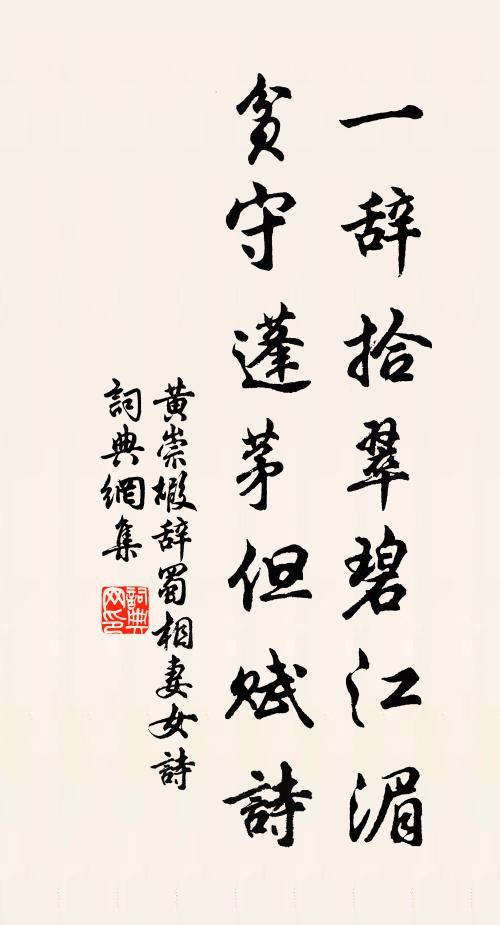 一辞拾翠碧江湄
貧守蓬茅但賦詩
黃崇嘏辞蜀相妻女詩
詞典網集
詞典网印